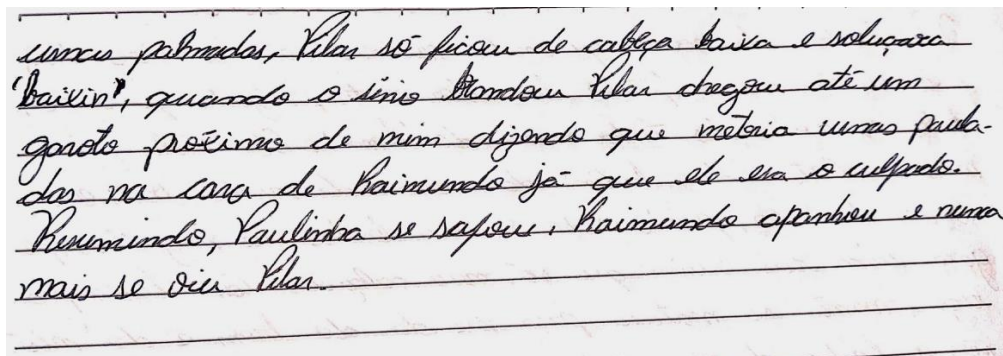 umas palmadas, Pilar só ficou de cabeça baixa e soluçava
"baixin", quando o sino blandou Pilar chegou até um
garoto próximo de mim dizendo que meteria umas paula-
das na cara de Raimundo já que ele era o culpado.
Resumindo, Paulinha se safou, Raimundo apanhou e nunca
mais se viu Pilar.